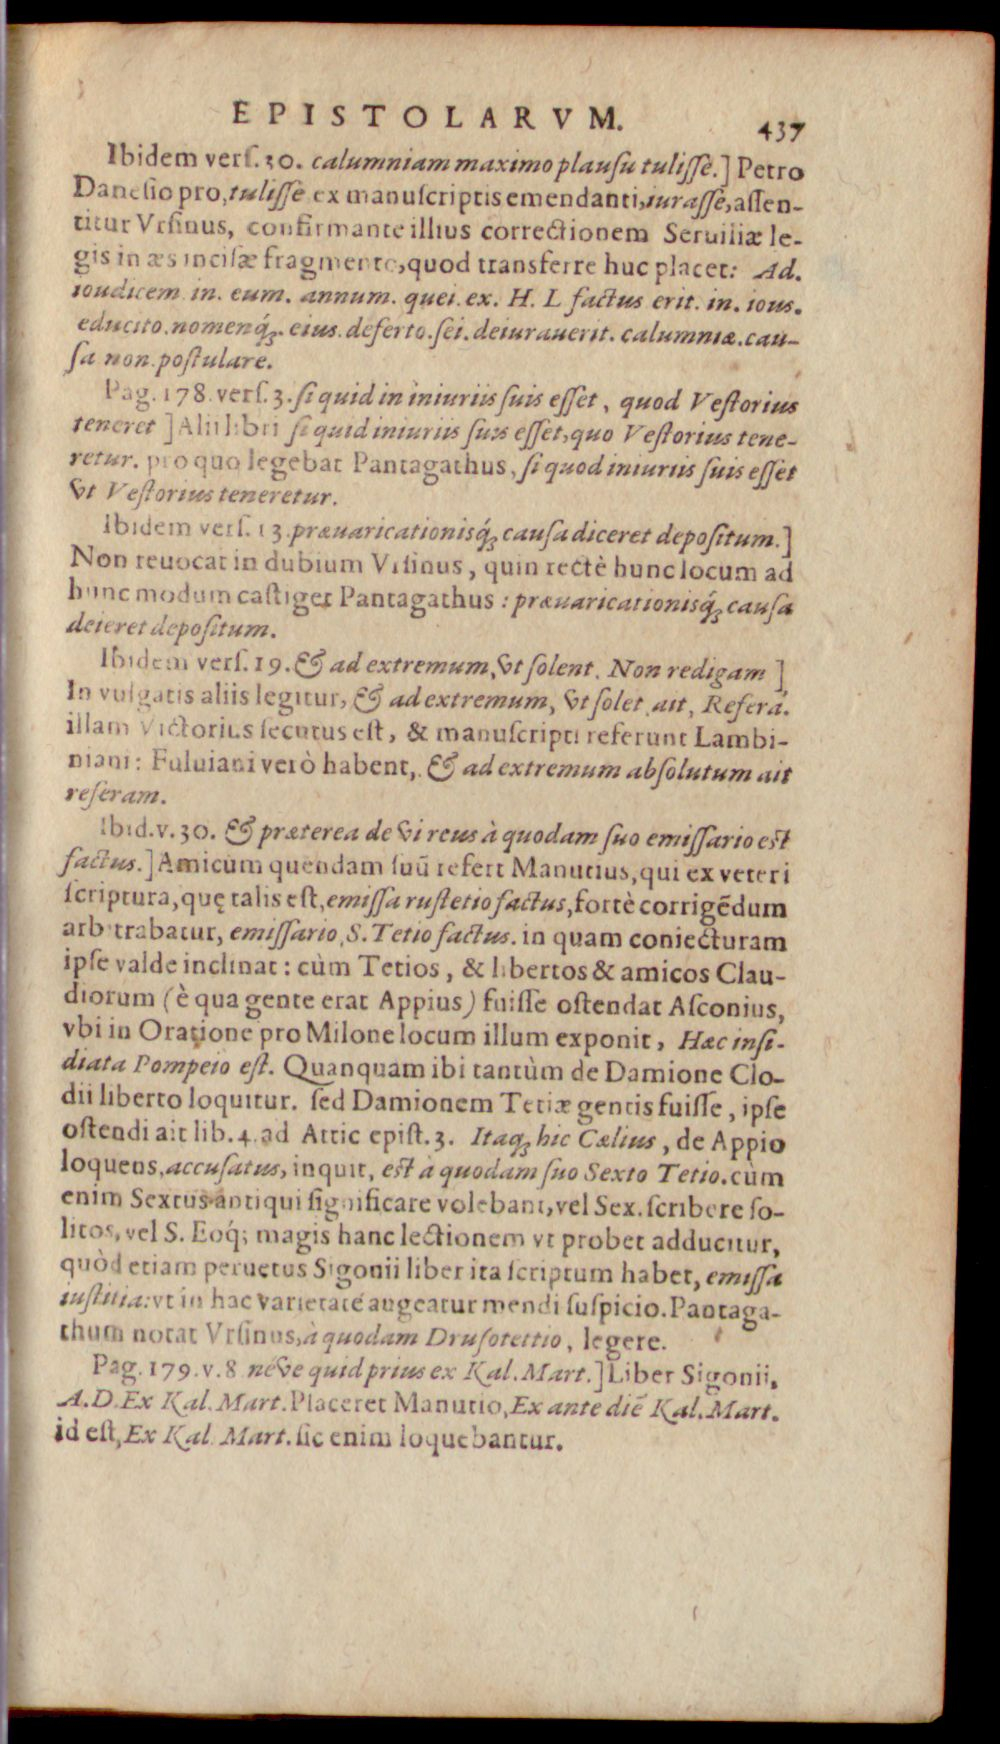 EPISTOLARVM. 437
Ibidem verſ. 30. calumniam maximo plauſu tuliſſe.] Petro
Daneſio pro, tuliſſe ex manuſcriptis emendanti, iuraſſe, aſſen-
titur Vrſinus, confirmante illius correctionem Seruiliæ le-
gis in æs inciſæ fragmento, quod transferre huc placet: Ad.
ioudicem in. eum. annum. quei ex. H. L factus erit. in. ious.
educito. nomenq́ꝫ. eius. deferto. ſei. deiurauerit. calumniæ. cau-
ſa non. poſtulare.
Pag. 178. verſ. 3. ſi quid in iniuriis ſuis eſſet, quod Veſtorius
teneret] Alii libri ſi quid iniuriis ſuis eſſet, quo Veſtorius tene-
retur. pro quo legebat Pantagathus, ſi quod iniuriis ſuis eſſet
vt Veſtorius teneretur.
Ibidem verſ. 13. præuaricationisq́ꝫ cauſa diceret depoſitum.]
Non reuocat in dubium Vrſinus, quin rectè hunc locum ad
hunc modum caſtiget Pantagathus: præuaricationisq́ꝫ cauſa
deieret depoſitum.
Ibidem verſ. 19. & ad extremum, vt ſolent. Non redigam]
In vulgatis aliis legitur, & ad extremum, vt ſolet, ait, Referā.
illam Victorius ſecutus eſt, & manuſcripti referunt Lambi-
niani: Fuluiani verò habent, & ad extremum abſolutum ait
reſeram.
Ibid. v. 30. & præterea de vi reus à quodam ſuo emiſſario eſt
factus.] Amicum quendam ſuū refert Manutius, qui ex veteri
ſcriptura, quę talis eſt, emiſſa ruſtetio factus, fortè corrigēdum
arbitrabatur, emiſſario, S. Tetio factus. in quam coniecturam
ipſe valde inclinat: cùm Tetios, & libertos & amicos Clau-
diorum (è qua gente erat Appius) fuiſſe oſtendat Aſconius,
vbi in Oratione pro Milone locum illum exponit, Hæc inſi-
diata Pompeio eſt. Quanquam ibi tantùm de Damione Clo-
dii liberto loquitur. ſed Damionem Tetiæ gentis fuiſſe, ipſe
oſtendi ait lib. 4. ad Attic epiſt. 3. Itaqꝫ hic Cælius, de Appio
loquens, accuſatus, inquit, eſt à quodam ſuo Sexto Tetio. cùm
enim Sextus antiqui ſignificare volebant, vel Sex. ſcribere ſo-
litos, vel S. Eoq́; magis hanc lectionem vt probet adducitur,
quòd etiam peruetus Sigonii liber ita ſcriptum habet, emiſſa
iuſtitia: vt in hac varietate augeatur mendi ſuſpicio. Pantaga-
thum notat Vrſinus, à quodam Druſotettio, legere.
Pag. 179. v. 8 néve quid prius ex Kal. Mart.] Liber Sigonii,
A.D. Ex Kal. Mart. Placeret Manutio, Ex ante diē Kal. Mart.
id eſt, Ex Kal. Mart. ſic enim loquebantur.